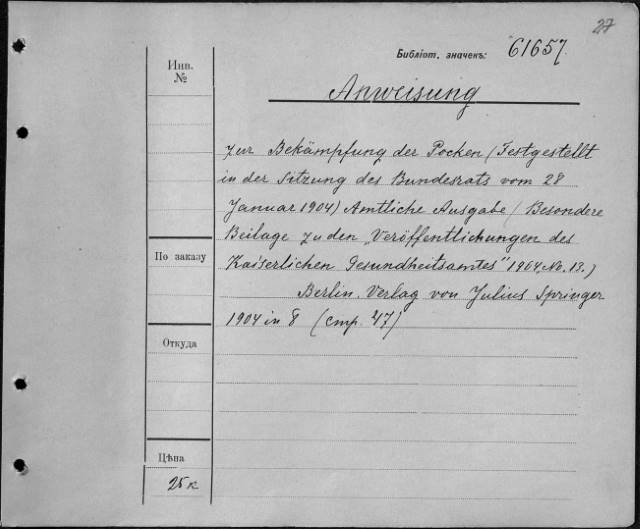 27
Библіот. значекъ: 61657.
Инв.
№
Anweisung
zur Bekämpfung der Pocken (Festgestellt
in der Sitzung des Bundesrats vom 28
Januar 1904) Amtliche Ausgabe (Besondere
Beilage zu den „Veröffentlichungen des
По заказу
Kaiserlichen Gesundheitsamtes" 1904, No. 13.)
Berlin. Verlag von Julius Springer
1904 in 8 (стр. 47)
Откуда
Цѣна
25 к